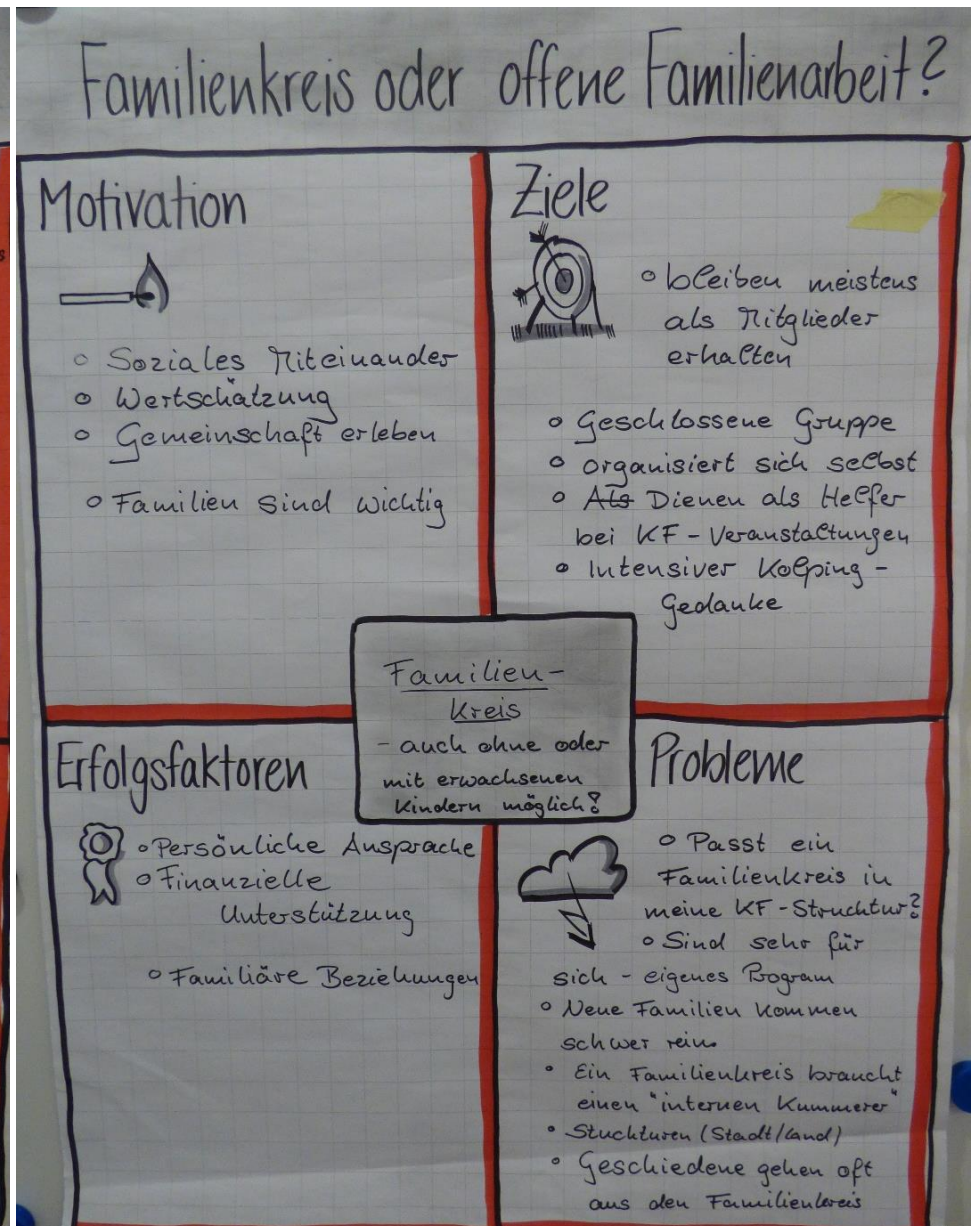 Familienkreis oder offene Familienarbeit?
Motivation
○ Soziales Miteinander
○ Wertschätzung
○ Gemeinschaft erleben
○ Familien sind wichtig
Ziele
○ bleiben meistens
als Mitglieder
erhalten
○ Geschlossene Gruppe
○ organisiert sich selbst
○ Als Dienen als Helfer
bei KF-Veranstaltungen
○ Intensiver Kolping-
Gedanke
Familien-
Kreis
- auch ohne oder
mit erwachsenen
Kindern möglich?
Erfolgsfaktoren
○ Persönliche Ansprache
○ Finanzielle
Unterstützung
○ Familiäre Beziehungen
Probleme
○ Passt ein
Familienkreis in
meine KF-Struchtur?
○ Sind sehr für
sich - eigenes Program
○ Neue Familien kommen
schwer rein.
○ Ein Familienkreis braucht
einen "internen Kummerer"
○ Stuchturen (Stadt/Land)
○ Geschiedene gehen oft
aus den Familienkreis